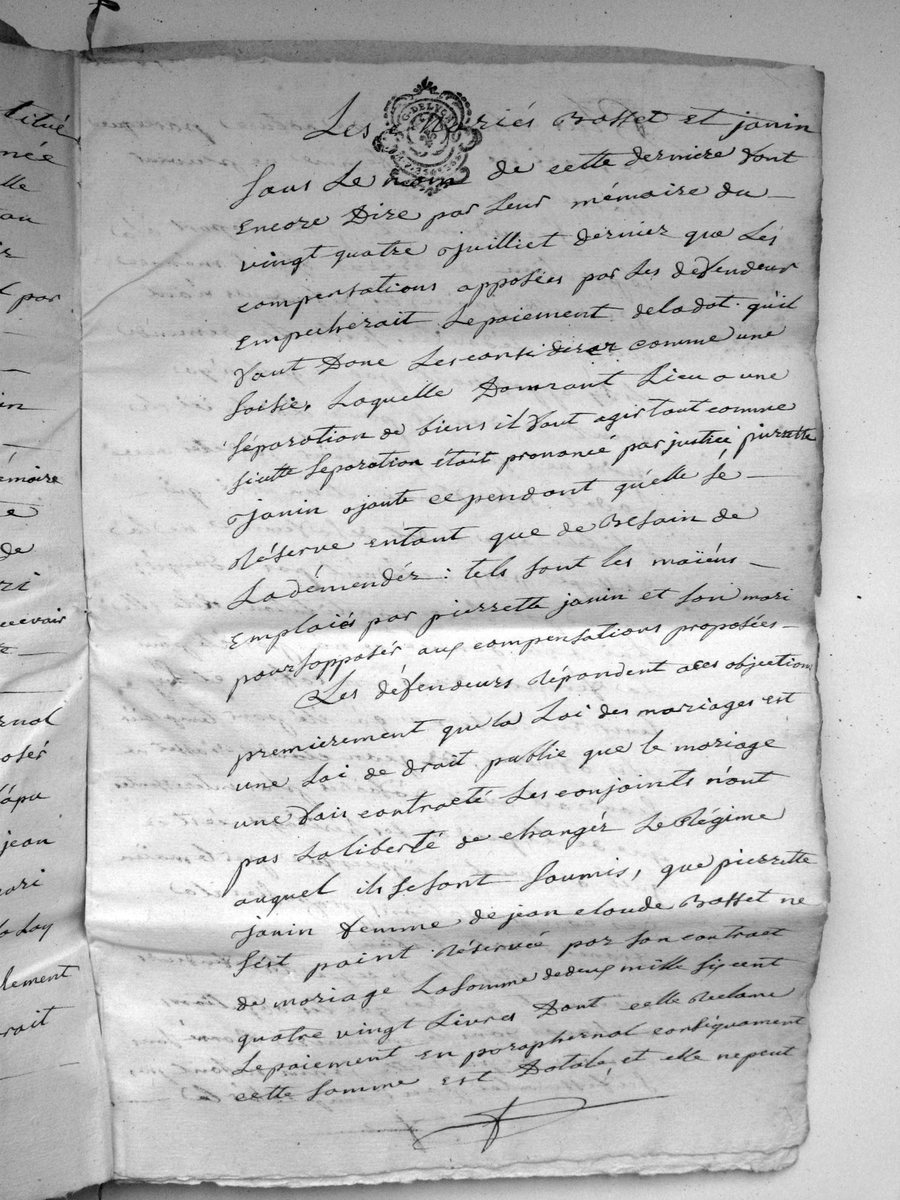 titué
née
elle
par
mémoire
de
recevoir
posér
jean
mari
la Loy
lement
rait
G. DE LYON
Les mariés Bosset et janin
Sous Le nom de cette derniere font
Encore Dire par Leur mémoire du —
vingt quatre juilliet dernier que Les
compensations opposées par Les defendeur
Empecherait Le paiement de la dot. qu'il
faut Donc Les considerer comme une
saisie, Laquelle Donnant Lieu a une
séparation de biens il faut agir tout comme
si cette separation était prononcé par justice pierrette
janin ajoute cependant qu'elle se —
Réserve entant que de Besoin de
La démendér : tels sont les maïéns —
Emploiés par pierrette janin et son mari
pour s'opposér aux compensations proposées —
Les défendeurs Répondent a ces objections
premierement que la Loi des mariages est
une Loi de droit publie que le mariage
une fois contracté Les conjoints n'ont
pas La liberté de changér Le Régime
auquel ils se sont soumis, que pierrette
janin femme de jean claude Bosset ne
s'est point Réservée par son contract
de mariage La somme de deux mille six cent
quatre vingt Livres Dont elle Réclame
Le paiement En paraphernal conséquament
cette somme est Dotale, et elle ne peut